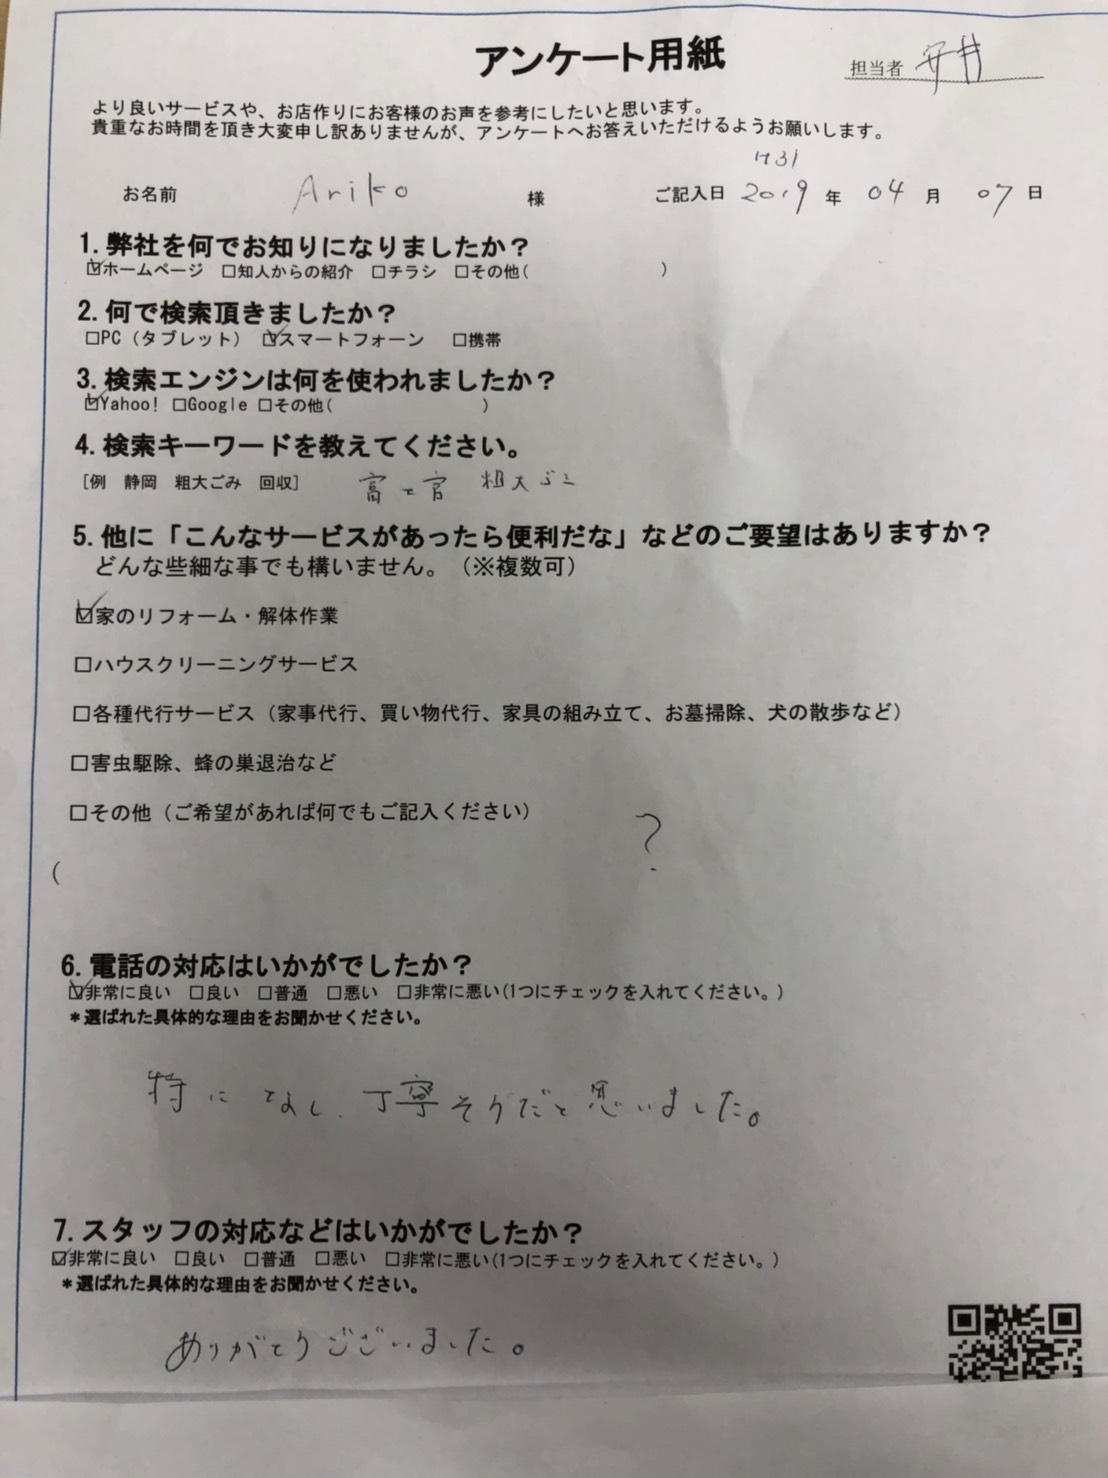 アンケート用紙
担当者 安井
より良いサービスや、お店作りにお客様のお声を参考にしたいと思います。
貴重なお時間を頂き大変申し訳ありませんが、アンケートへお答えいただけるようお願いします。
H31
お名前 Ariko 様 ご記入日 2019 年 04 月 07 日
1. 弊社を何でお知りになりましたか？
☑ホームページ □知人からの紹介 □チラシ □その他( )
2. 何で検索頂きましたか？
□PC（タブレット） ☑スマートフォーン □携帯
3. 検索エンジンは何を使われましたか？
☑Yahoo! □Google □その他( )
4. 検索キーワードを教えてください。
[例 静岡 粗大ごみ 回収] 富士宮 粗大ゴミ
5. 他に「こんなサービスがあったら便利だな」などのご要望はありますか？
どんな些細な事でも構いません。（※複数可）
☑家のリフォーム・解体作業
□ハウスクリーニングサービス
□各種代行サービス（家事代行、買い物代行、家具の組み立て、お墓掃除、犬の散歩など）
□害虫駆除、蜂の巣退治など
□その他（ご希望があれば何でもご記入ください）
?
(
6. 電話の対応はいかがでしたか？
☑非常に良い □良い □普通 □悪い □非常に悪い(1つにチェックを入れてください。)
＊選ばれた具体的な理由をお聞かせください。
特になし、丁寧そうだと思いました。
7. スタッフの対応などはいかがでしたか？
☑非常に良い □良い □普通 □悪い □非常に悪い(1つにチェックを入れてください。)
＊選ばれた具体的な理由をお聞かせください。
ありがとうございました。